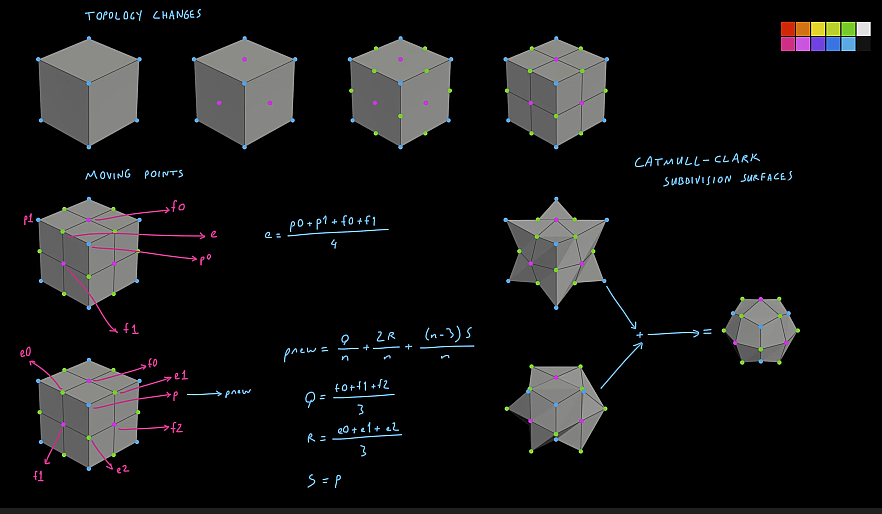 TOPOLOGY CHANGES
CATMULL-CLARK
SUBDIVISION SURFACES
MOVING POINTS
p1
f0
e
p0
f1
e = p0+p1+f0+f1 / 4
e0
f0
e1
p → pnew
f2
f1
e2
pnew = Q/n + 2R/n + (n-3)S/n
Q = f0+f1+f2 / 3
R = e0+e1+e2 / 3
S = p
+
=